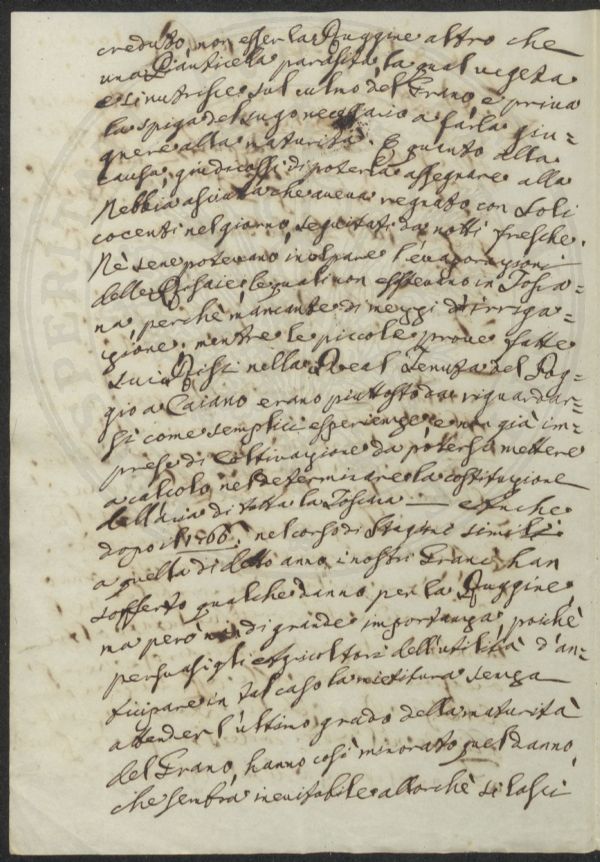 creduto, non esser la Ruggine altro che
una Pianticella parasita, la qual vegeta
e si nutrisce sul culmo del Grano, e priva
la spiga del sugo necessario a farla giu=
gnere alla maturità. E quanto alla
causa, giudicossi di poterla assegnare alla
Nebbia asciutta che aveva regnato con Soli
cocenti nel giorno, seguitati da notti fresche.
Nè se ne potevano incolpare l'evaporazioni
delle Risaie, le quali non esistevano in Tosca=
na, perchè mancante di mezzi d'irriga=
zione, mentre le piccole prove fatte
sui Risi nella Real Tenuta del Pog=
gio a Caiano erano piuttosto da riguardar=
si come semplici esperienze, e non già im=
prese di coltivazione da potersi mettere
a calcolo nel determinare la costituzione
dell'aria di tutta la Toscana — Anche
dopo il 1766, nel corso di Stagioni simili
a quella di detto anno, i nostri Grani han
sofferto qualche danno per la Ruggine,
ma però non di grande importanza, poichè
persuasi gli Agricoltori dell'utilità d'an=
ticipare in tal caso la mietitura senza
attender l'ultimo grado della maturità
del Grano, hanno così minorato quel danno,
che sembra inevitabile allorchè si lasci